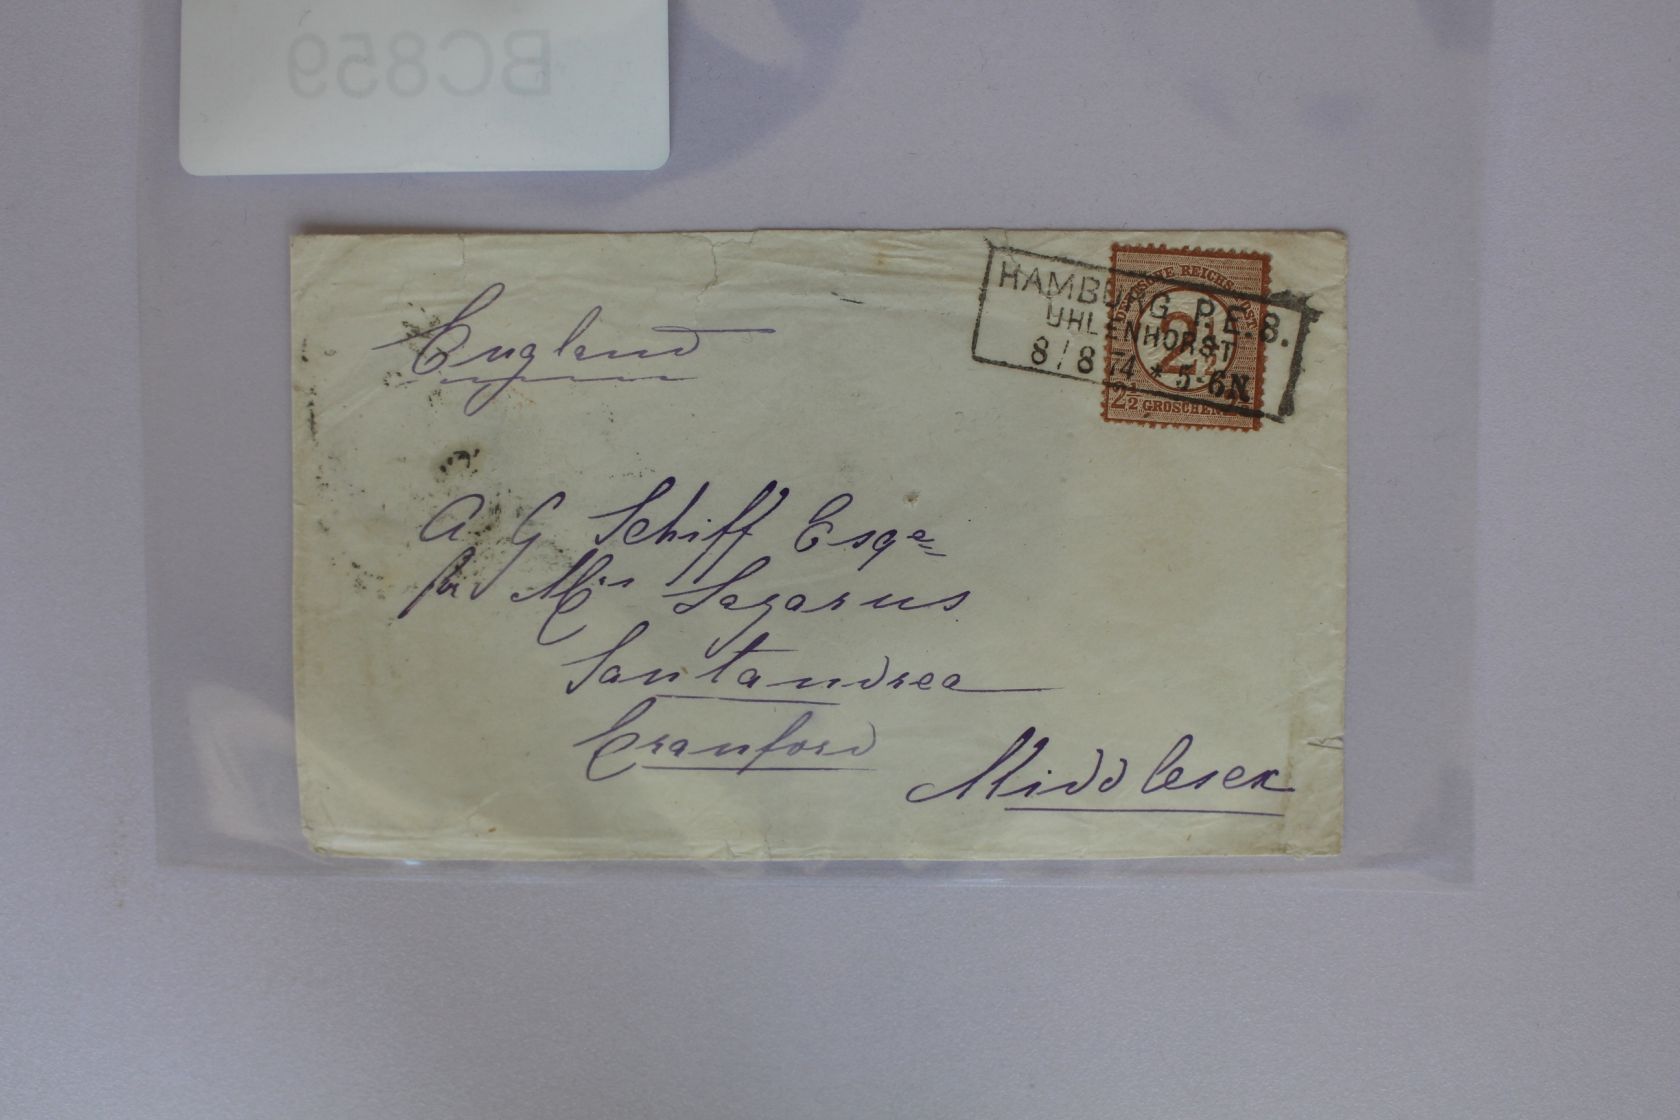 BC859
HAMBURG P.E.8.
UHLENHORST
8/8 74 * 5-6N
DEUTSCHE REICHS-POST
2½
2½ GROSCHEN 2½
England
A G Schiff Esqre
pr Mrs Lazarus
Santandrea
Cranford
Middlesex